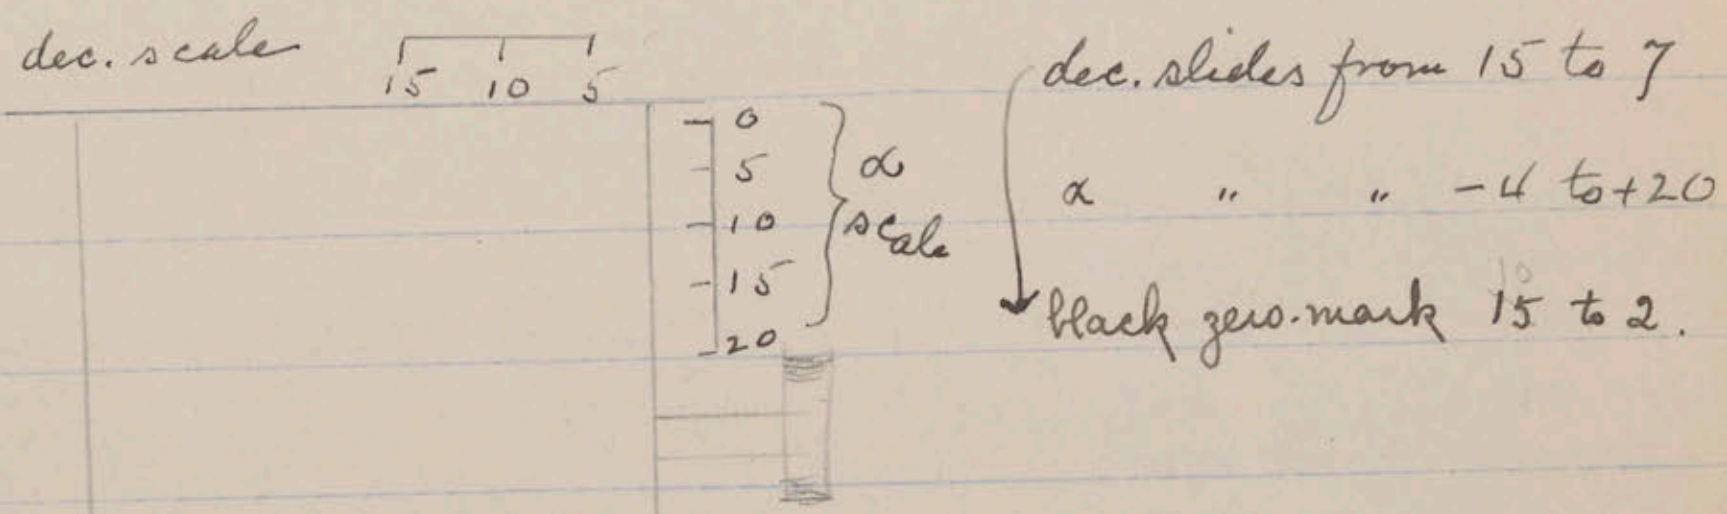 dec. scale
15 10 5
0
5
10
15
20
α
scale
dec. slides from 15 to 7
α " " -4 to +20
10
black zero-mark 15 to 2.